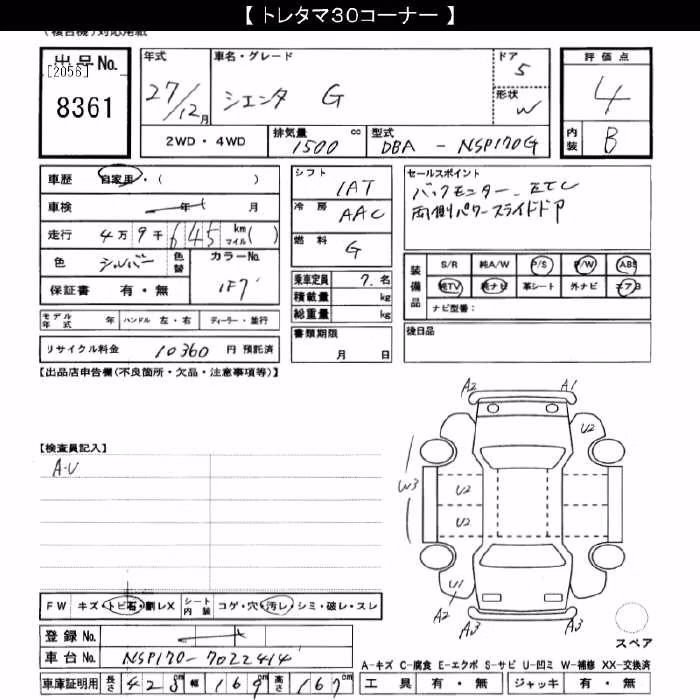 【 トレタマ30コーナー 】
(複合機)対応用紙
出品No. [2056] 8361
年式 27/12月
車名・グレード シエンタ G
ドア 5
形状 W
評価点 4
内装 B
2WD・4WD
排気量 1500 cc
型式 DBA - NSP170G
車歴 自家用・( )
車検 年 月
走行 4万9千645 km マイル( )
色 シルバー 色替
カラーNo. 1F7
保証書 有・無
シフト IAT
冷房 AAC
燃料 G
乗車定員 7.名
積載量 kg
総重量 kg
書類期限 月 日
セールスポイント
バックモニター、ETC
両側パワースライドドア
装備品
S/R 純A/W P/S P/W ABS
純TV 純ナビ 革シート 外ナビ エアB
ナビ型番:
後日品
モデル年式 年 ハンドル 左・右 ディーラー・並行
リサイクル料金 10360 円 預託済
【出品店申告欄(不良箇所・欠品・注意事項等)】
【検査員記入】
A-U
A2 A1
U2
W3
U2
U2
U1
A2
A3 A3
スペア
FW キズ・トビ石・割レX シート内装 コゲ・穴・汚レ・シミ・破レ・スレ
登録No.
車台No. NSP170-7022414
車庫証明用 長さ 428cm 幅 169cm 高さ 167cm
A-キズ C-腐食 E-エクボ S-サビ U-凹ミ W-補修 XX-交換済
工具 有・無 ジャッキ 有・無